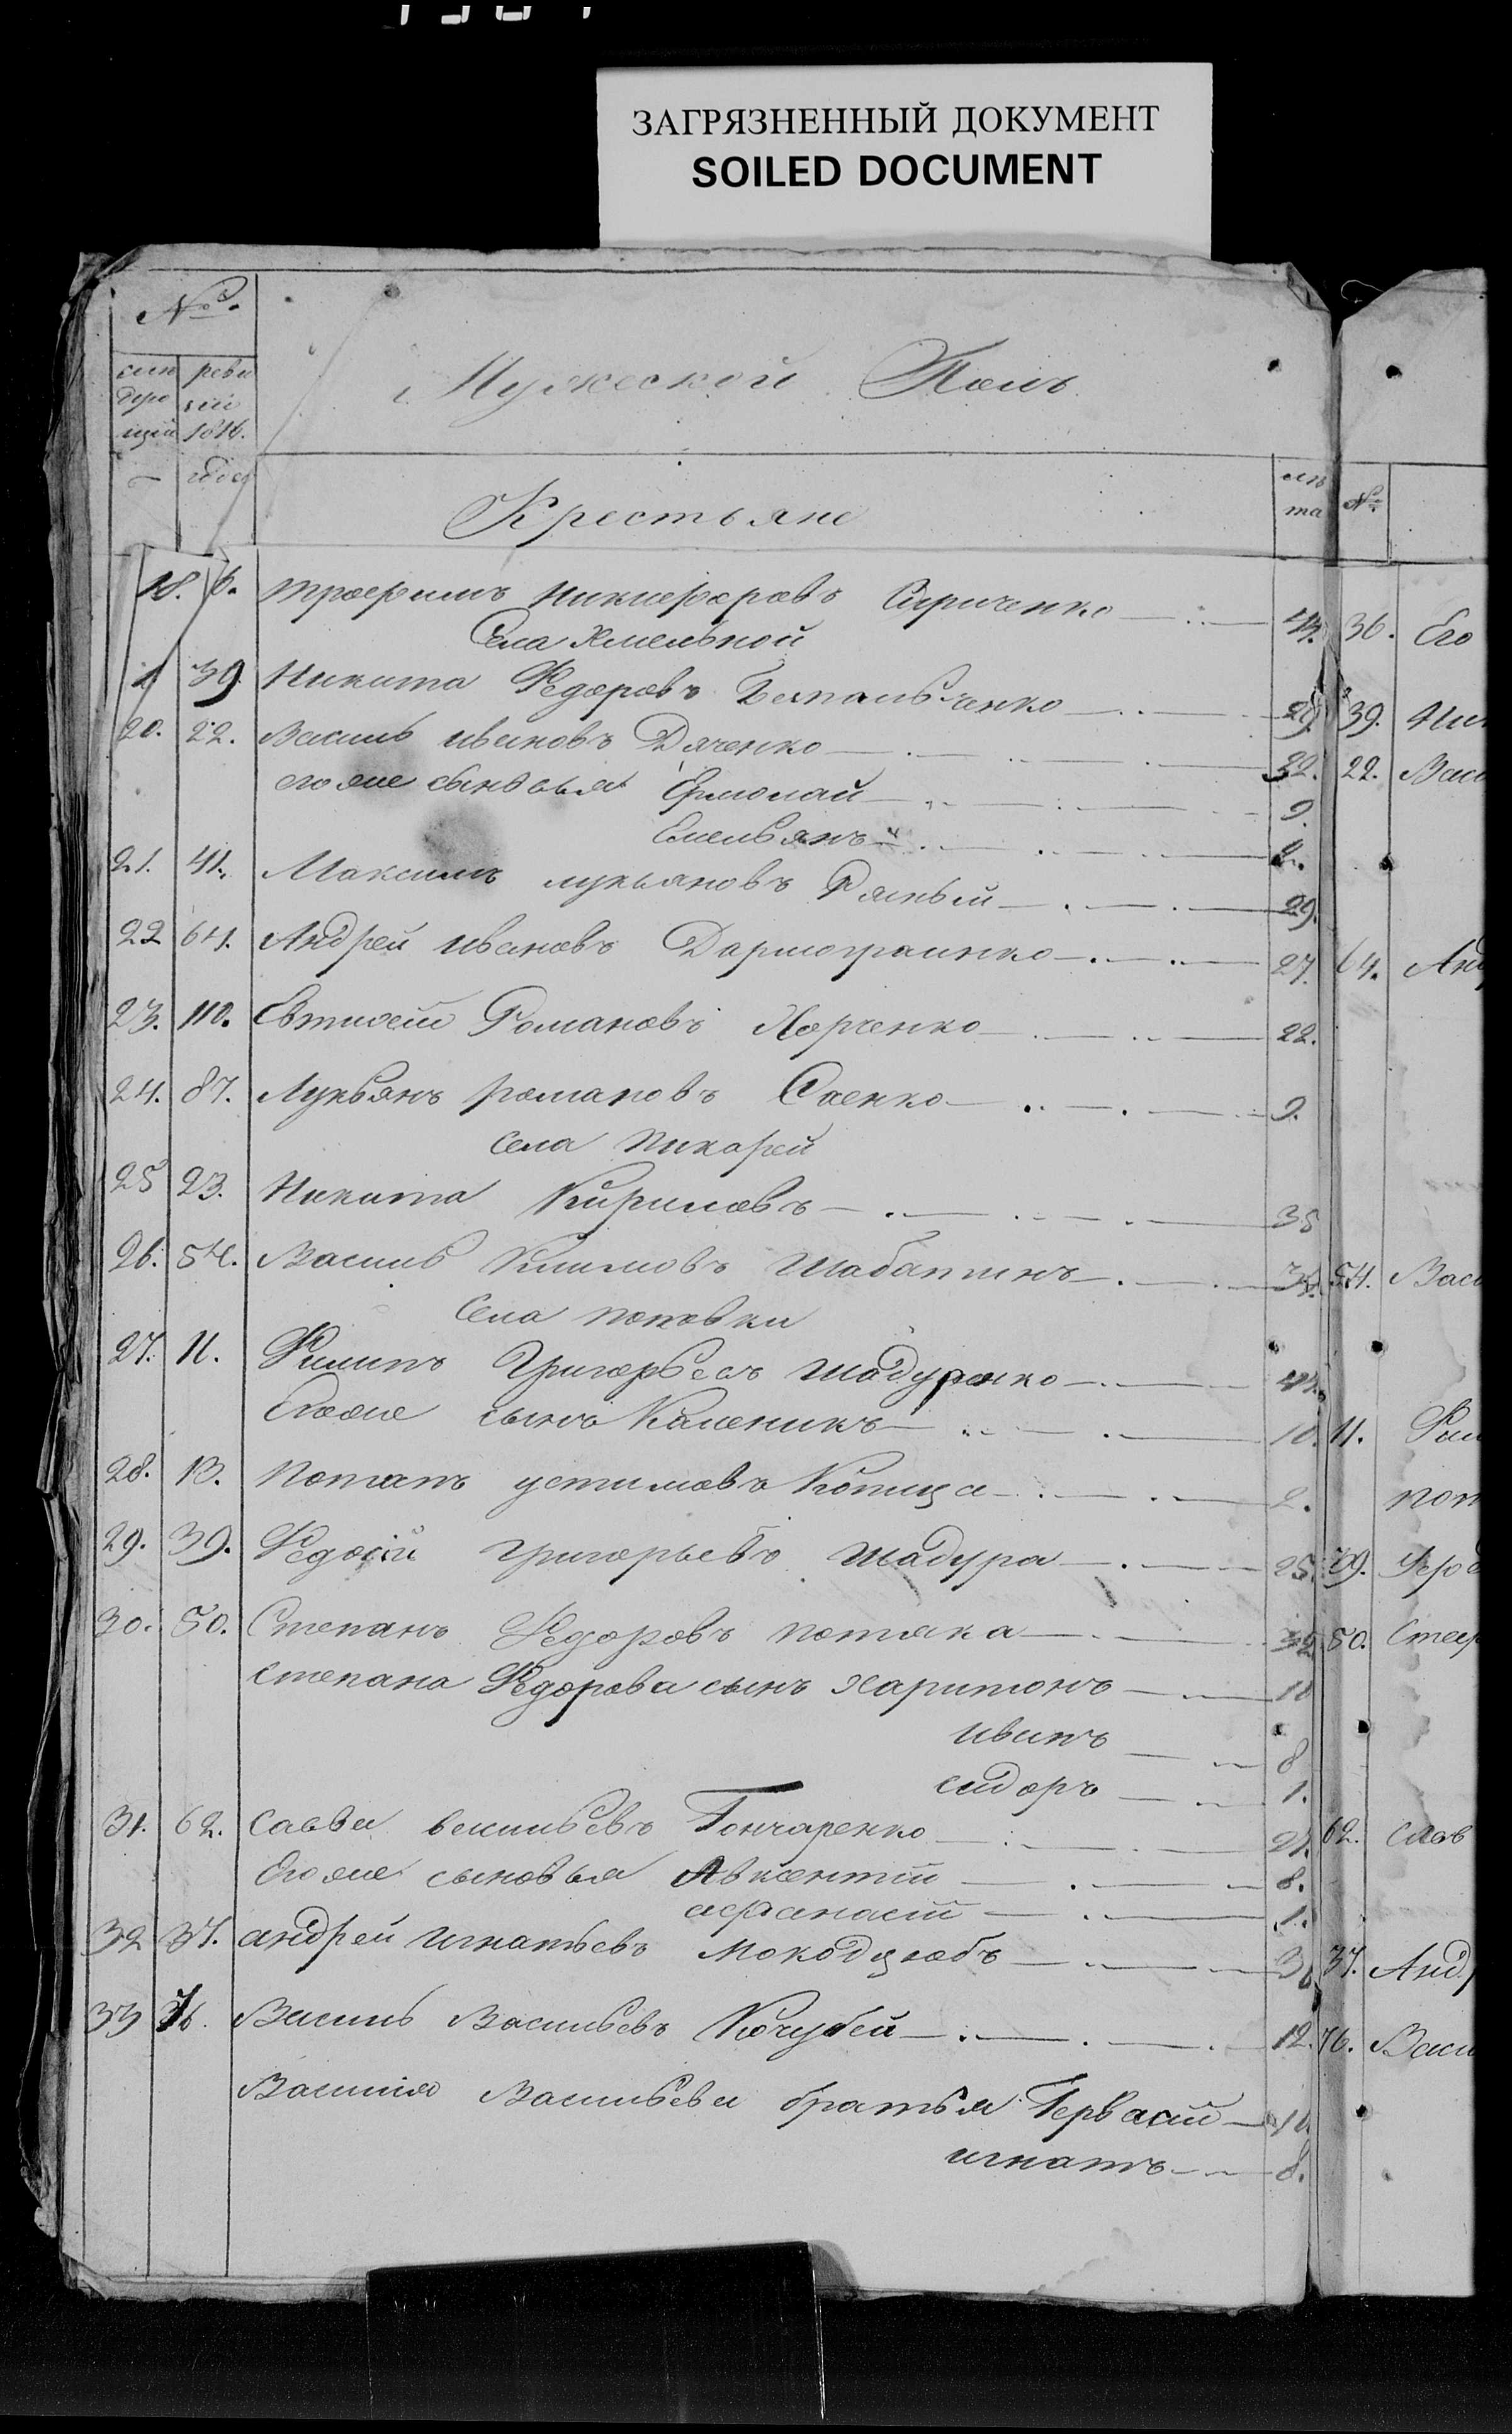 ЗАГРЯЗНЕННЫЙ ДОКУМЕНТ
SOILED DOCUMENT
№
реви
зіи
1816.
года
Мужеской Полъ
Крестьяне
лѣ
та
№
18. 6. трофимъ никифоровъ 44. 36. Его
Села Хмельной
39. Никита Федоровъ 29. 39. Ник
20. 22. Василь ивановъ Дяченко 32. 22. Васи
его же сыновья Ермолай 9.
Емельянъ 2.
21. 41. Максимъ лукьяновъ Рясный 29.
22 64. Андрей ивановъ 27. 64. Анд
23. 110. Евтихей Романовъ Харченко 22.
24. 87. Лукьянъ романовъ Саенко 9.
села пикарей
25 23. Никита Кириловъ 38
26. 54. Василь Климовъ 54. Васи
Села поповки
27. 11. Филипъ Григорьевъ Шадуренко
Егоже сынъ Каленикъ 10. 11. Фил
28. 13. Потапъ устимовъ Копица 2. пот
29. 39. Федосій григорьевъ Шадура 25. 39. Федо
30. 50. Степанъ Федоровъ потяка 32 50. Степ
степана Федорова сынъ харитонъ 10
иванъ 8
сидоръ 1.
31. 62. савва васильевъ Гончаренко 27. 62. савв
Егоже сыновья Авксентій 8.
афанасій 1.
32 37. андрей игнатьевъ Мокодзюбъ 36 37. Анд
33 76. Василь Васильевъ Кочубей 12. 76. Васи
Василія Васильева братья Гервасій 10.
игнатъ 8.